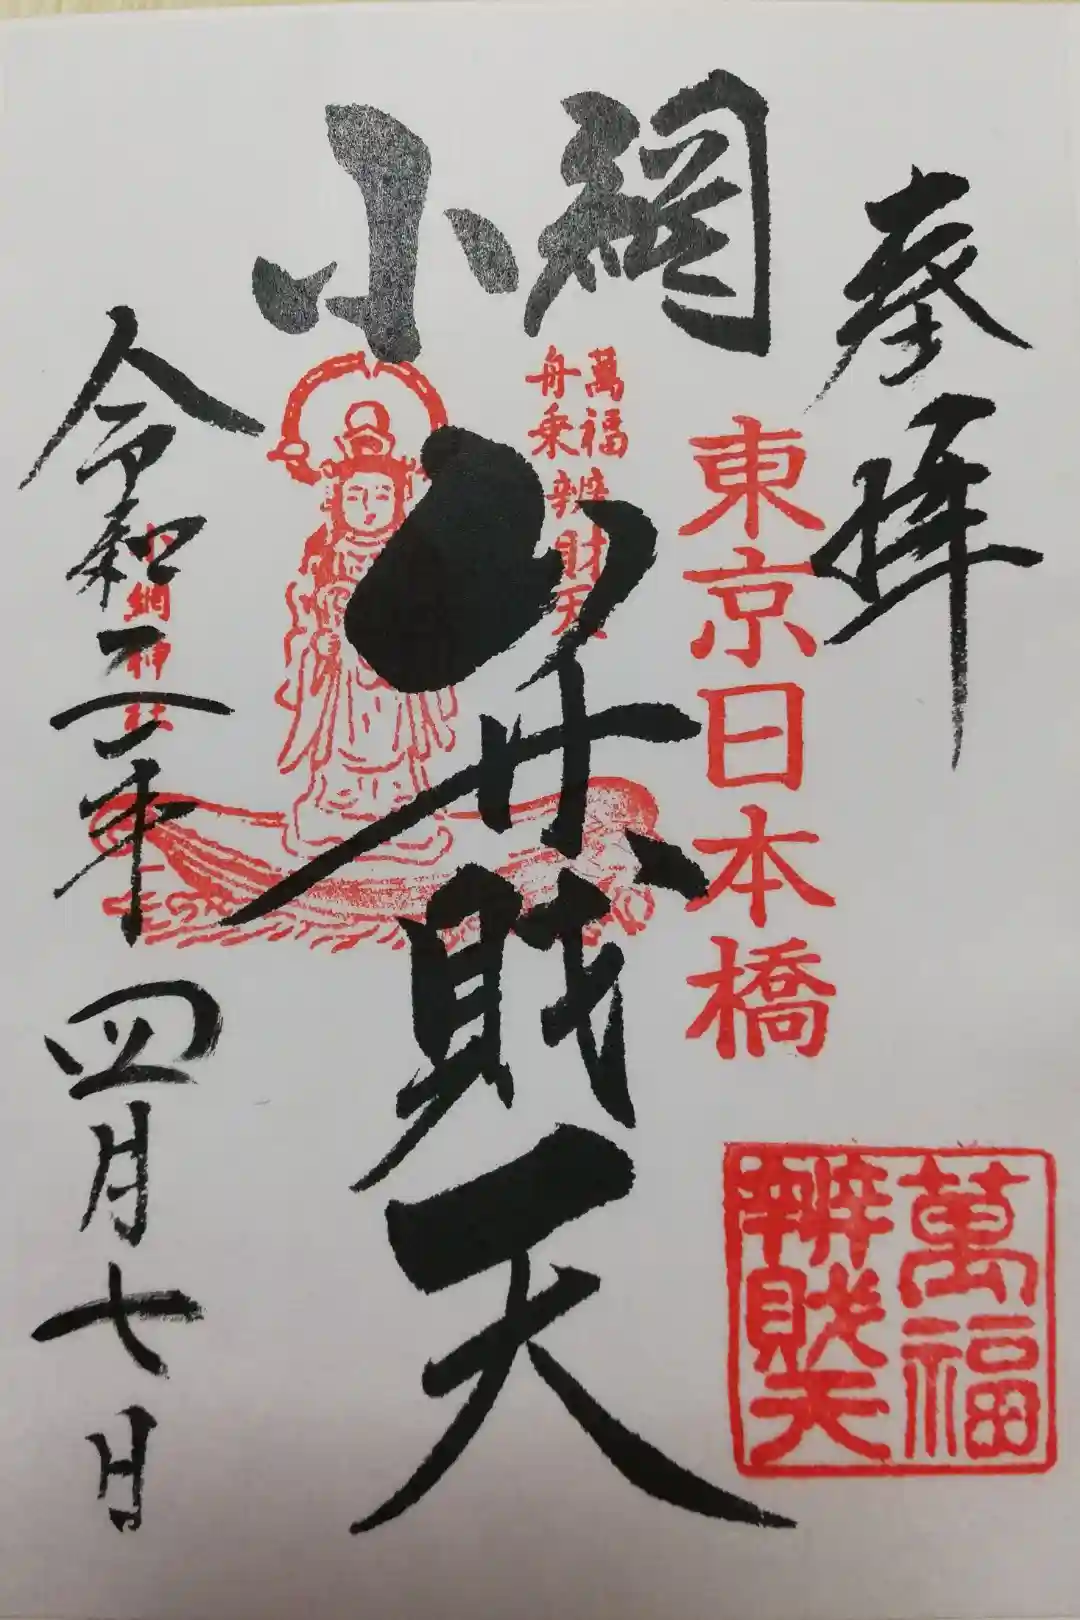 奉拝
東京日本橋
小網
弁財天
萬福
舟乗辨財天
萬福
辨財天
令和二年四月七日
小網神社